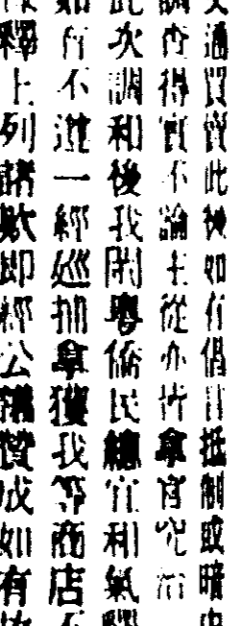 通買賣此後如有倡言抵制或暗
查得實不論主從亦皆拿官究治
此次調和後我閩粵僑民總宜和氣釋
有不遵一經巡捕拿獲我等商店不
釋上列諸款即經公議贊成如有